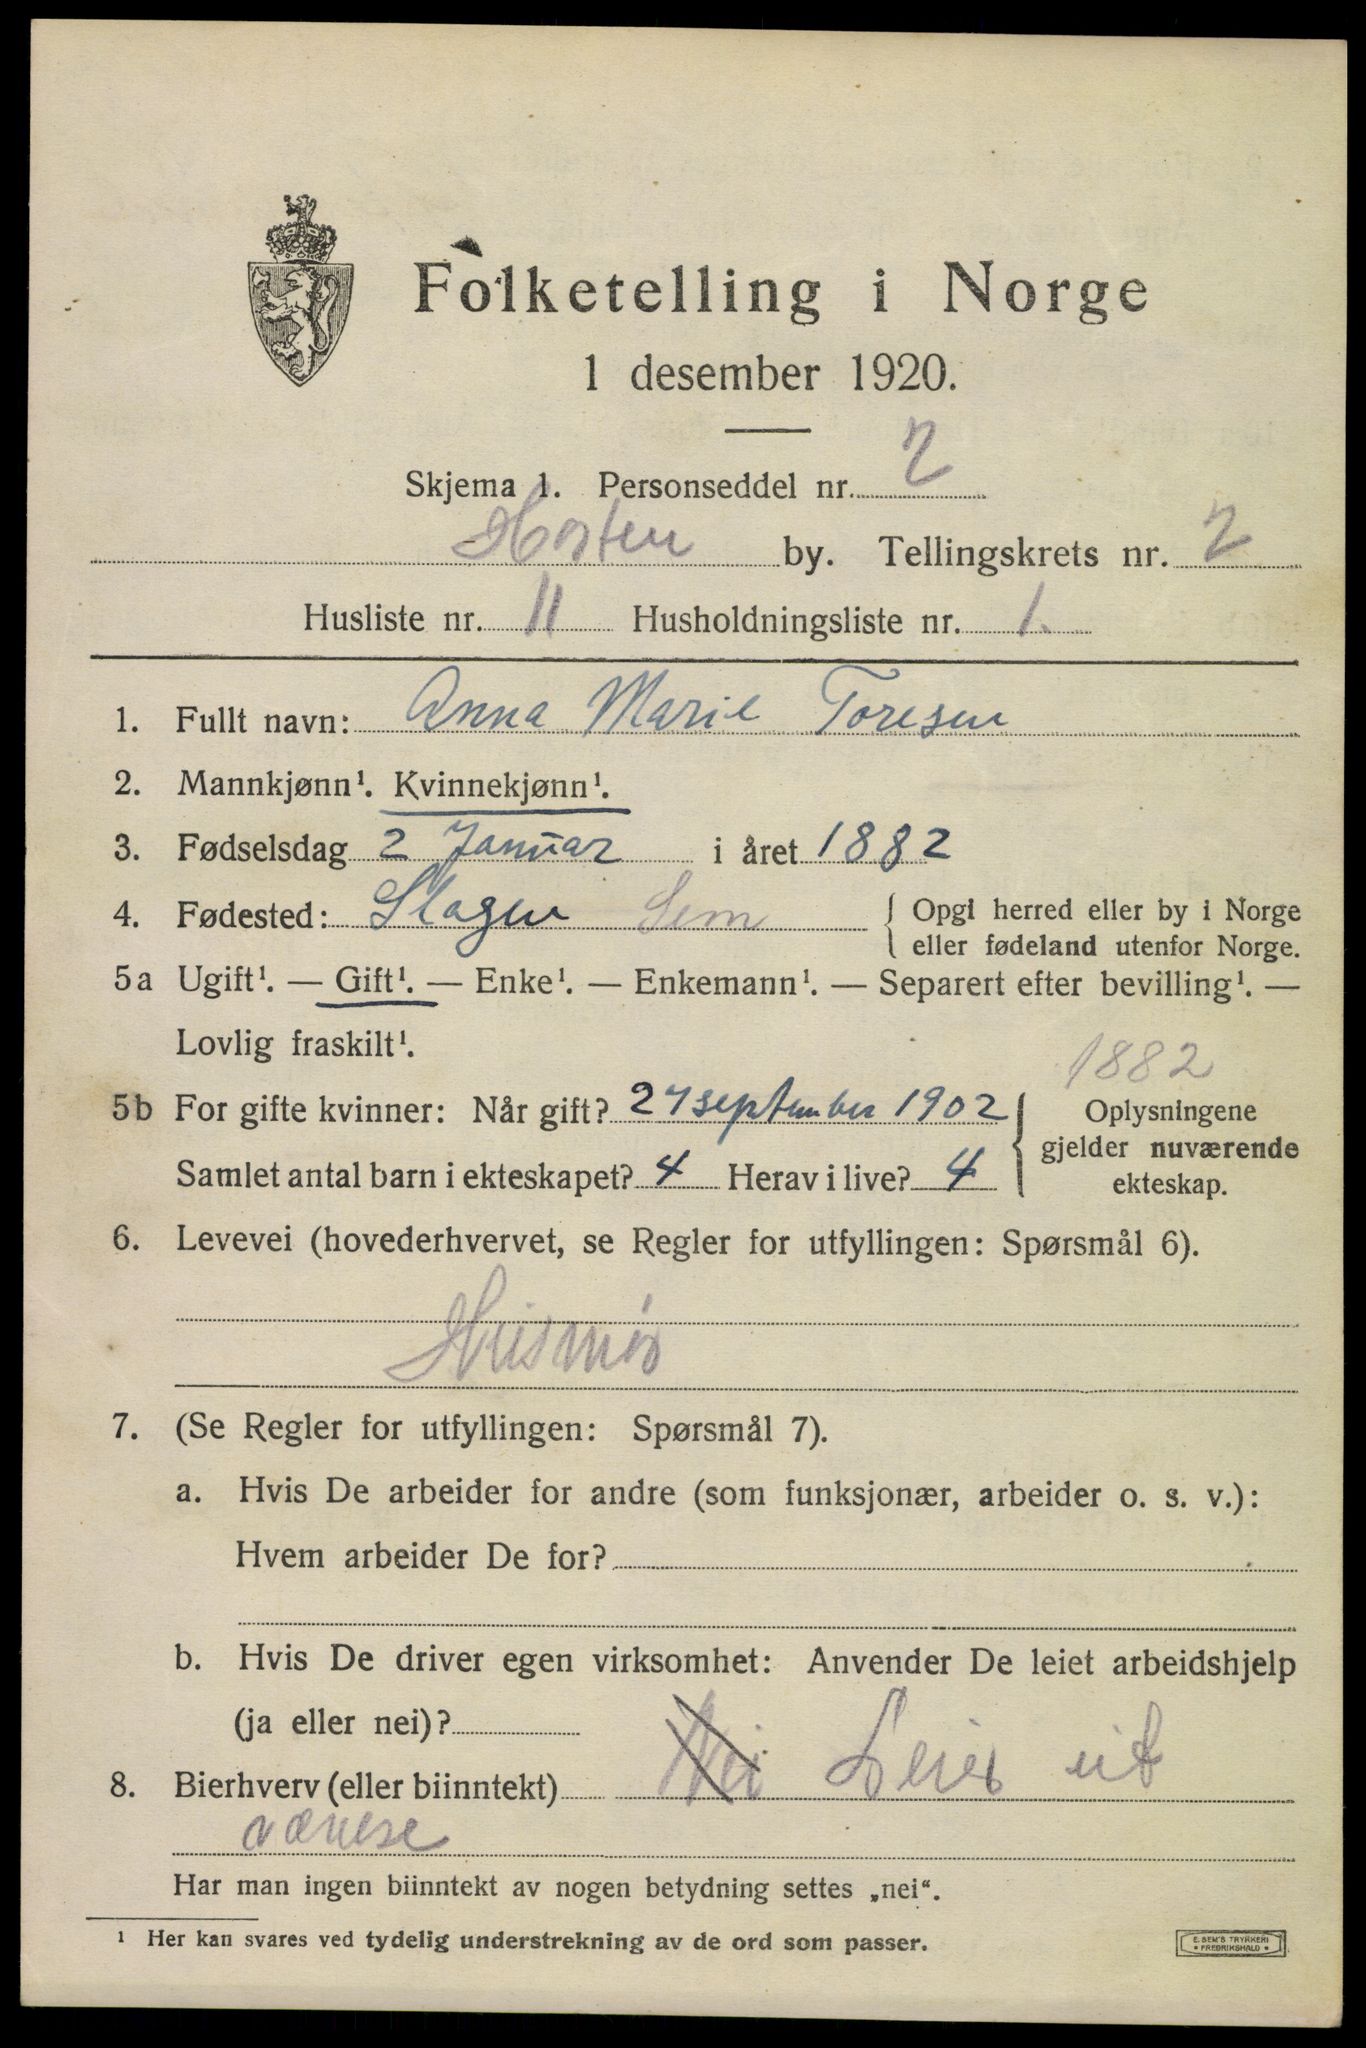 Folketelling i Norge
1 desember 1920.
Skjema 1. Personseddel nr. 2
Horten by. Tellingskrets nr. 2
Husliste nr. 11 Husholdningsliste nr. 1.
1. Fullt navn: Anna Marie Toresen
2. Mannkjønn¹. Kvinnekjønn¹.
3. Fødselsdag 2 Januar i året 1882
4. Fødested: Slagen Sem { Opgi herred eller by i Norge
eller fødeland utenfor Norge.
5a Ugift¹. — Gift¹. — Enke¹. — Enkemann¹. — Separert efter bevilling¹. —
Lovlig fraskilt¹.
1882
5b For gifte kvinner: Når gift? 27 september 1902 { Oplysningene
gjelder nuværende
Samlet antal barn i ekteskapet? 4 Herav i live? 4 ekteskap.
6. Levevei (hovederhvervet, se Regler for utfyllingen: Spørsmål 6).
Husmor
7. (Se Regler for utfyllingen: Spørsmål 7).
a. Hvis De arbeider for andre (som funksjonær, arbeider o. s. v.):
Hvem arbeider De for?
b. Hvis De driver egen virksomhet: Anvender De leiet arbeidshjelp
(ja eller nei)?
8. Bierhverv (eller biinntekt) Nei Leier ut
værelse
Har man ingen biinntekt av nogen betydning settes „nei“.
¹ Her kan svares ved tydelig understrekning av de ord som passer.
E. SEM'S TRYKKERI
• FREDRIKSHALD •